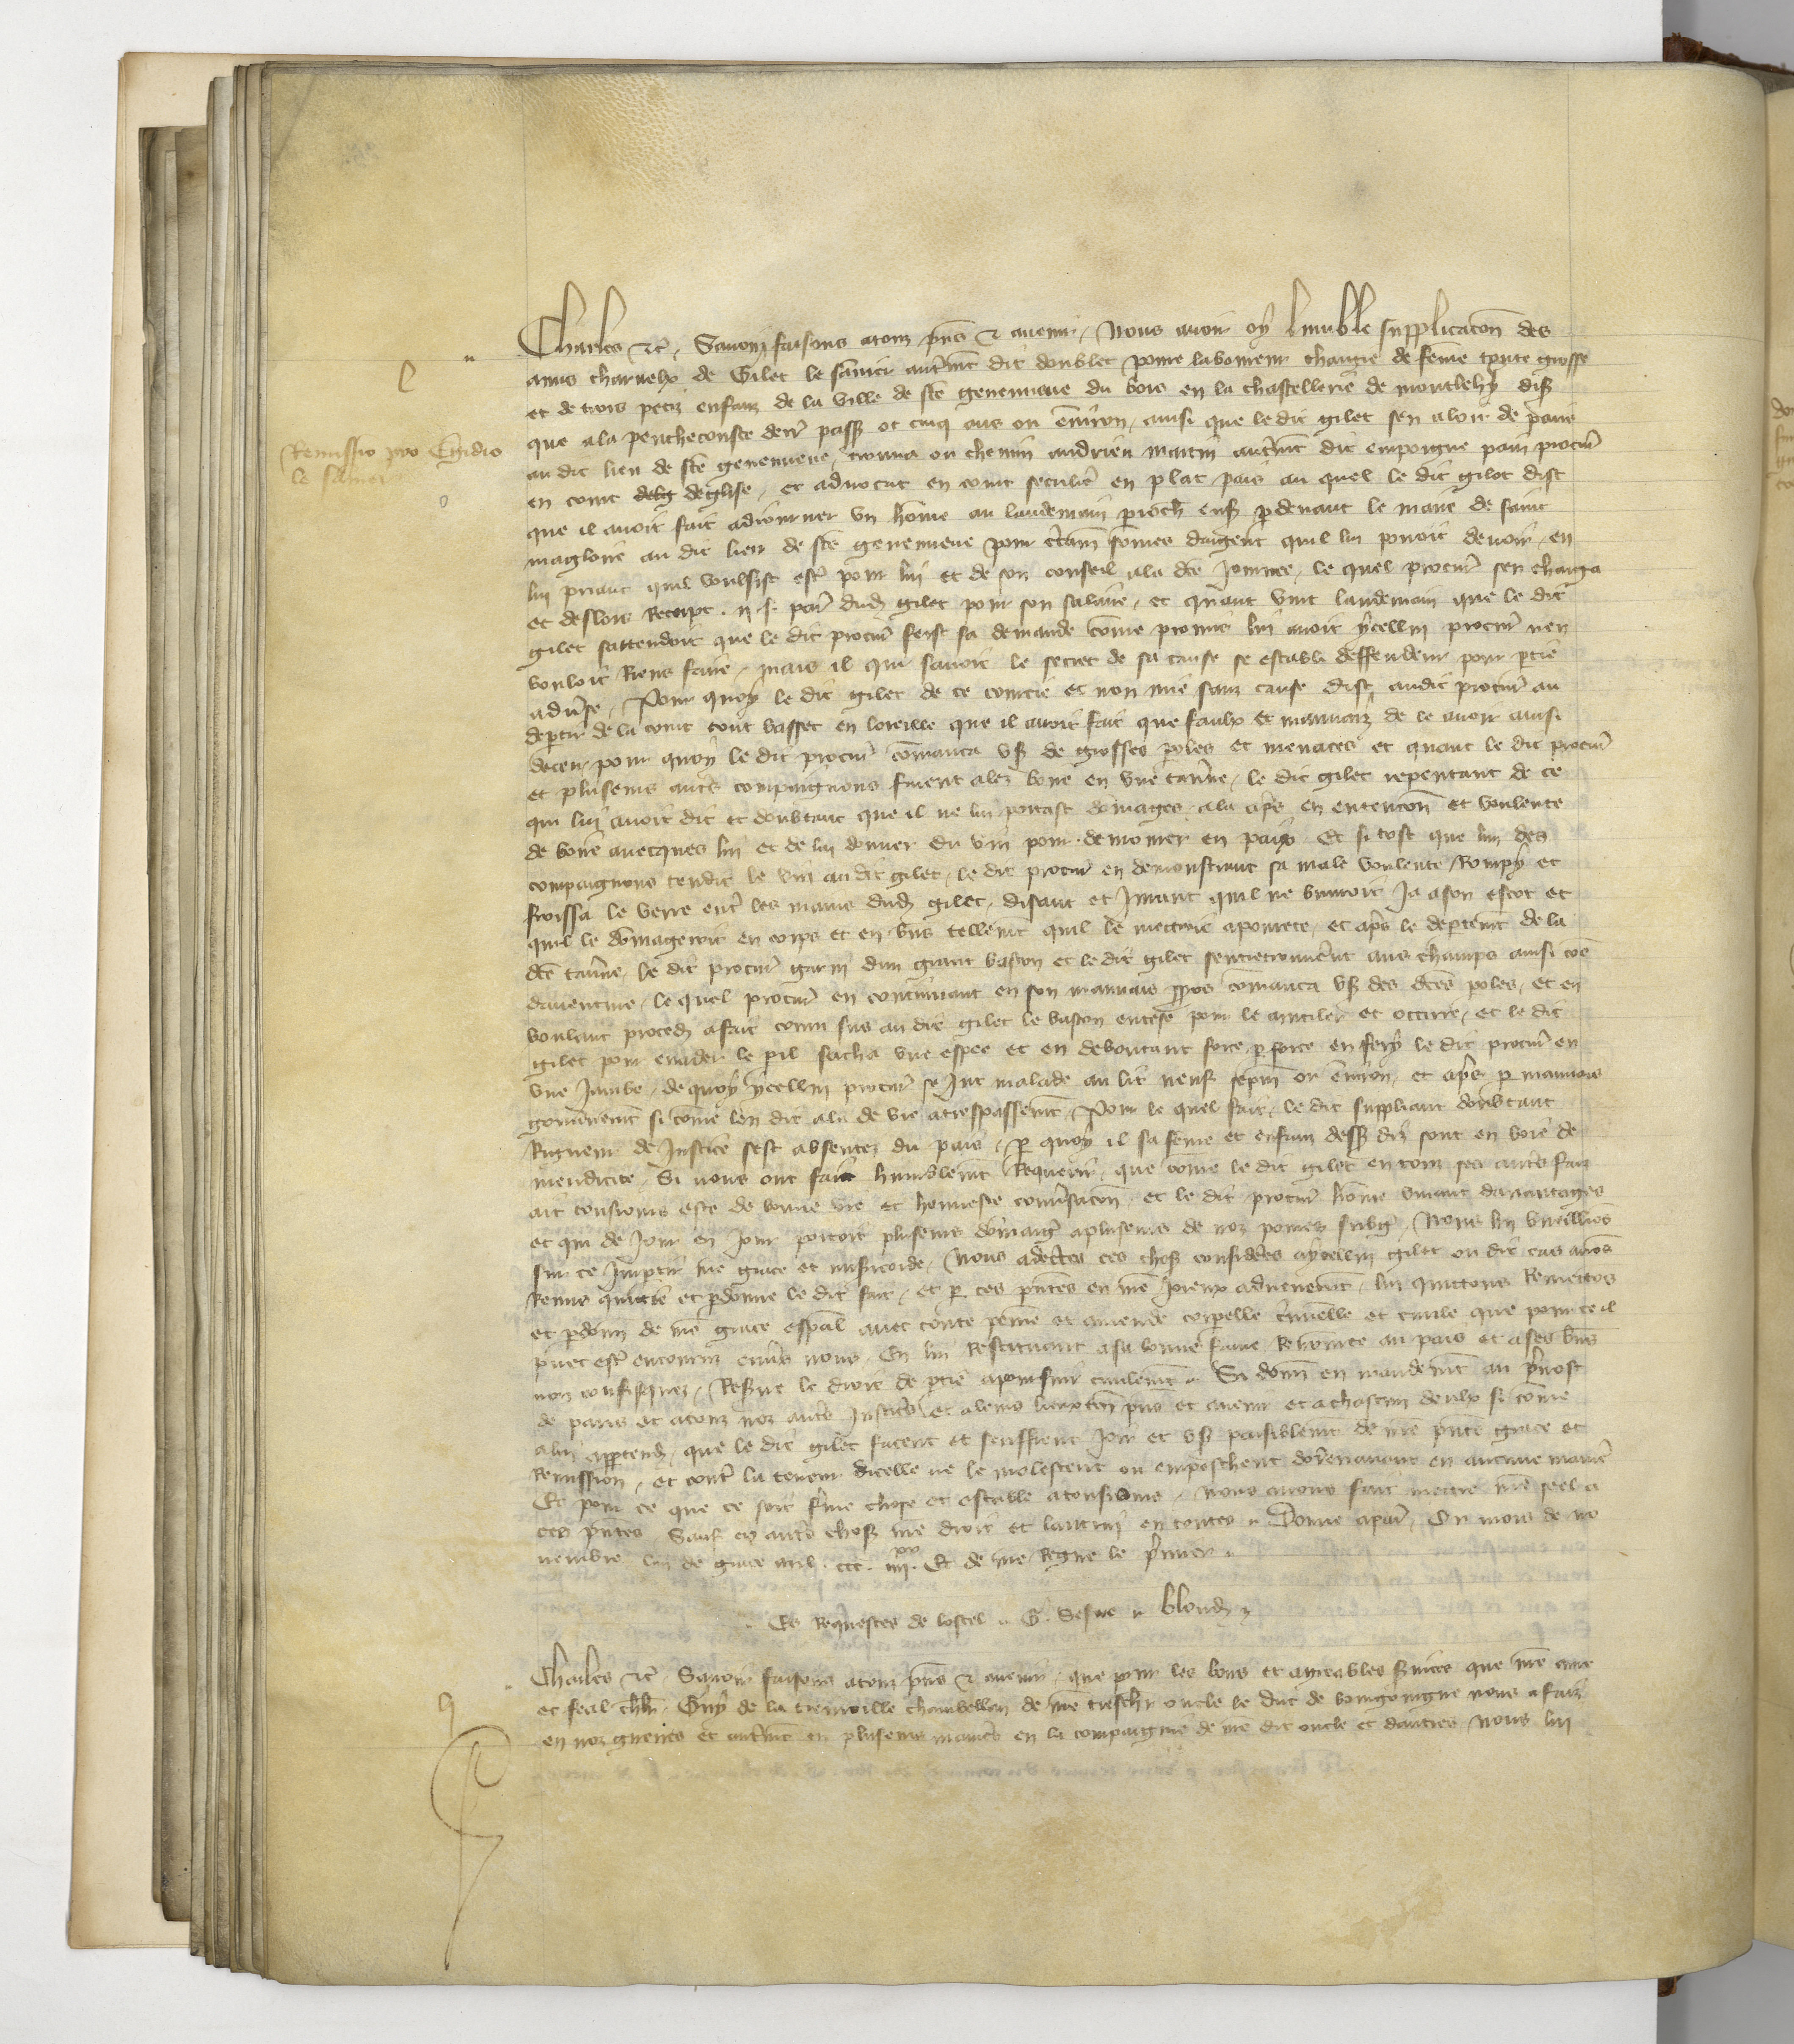 Charles etc. Savoir faisons a touz pns et avenir, Nous avoir oy lumble supplicacon des
amis charnelx de Gilet le samier autremt dit doublet povre laboureur chargie de feme toute grosse
et de trois petiz enfanz de la ville de ste genevieve du bois en la chastellerie de montlehery disz
que a la penthecouste dern passe ot cinq ans ou environ, ainsi que le dit gilet sen aloit de paris
Remissio pro Egidio
le samer
au dit lieu de ste genevieve, trouva ou chemin andrieu martin autremt dit empoigne pain procur
en court deglise, et advocat en court seculier en plat pais au quel le dit gilet dist
que il avoit fait adiourner un home au landemain proch ens pdevant le maire de saint
magloire au dit lieu de ste genevieve pour ctain somes dargent quil lui povoit devoir, en
lui priant quil voulsist estre pour lui et de son conseil a la dce journee, le quel procur sen charga
et deslors recept .ii. s. par dud gilet pour son salaire, et quant vint landemain que le dit
gilet sattendoit que le dit procur feist sa demande come promis lui avoit ycellui procur nen
vouloit riens faire, mais il qui savoit le secret de sa cause se establi deffendeur pour ptie
adverse, Pour quoy le dit gilet de ce courcie et non mie sanz cause dist audit procur au
deptir de la court tout basset en loreille que il avoit fait que faulx et mauvaiz de le avoir ainsi
deceu, pour quoy le dit procur comanca us de grosses poles et menaces et quant le dit procur
et plusieurs autres compaignons furent alez boire en une taverne, le dit gilet repentant de ce
qui lui avoit dit et doubtant que il ne lui portast domages, ala apres en entencon et voulente
de boire avecques lui et de lui donner du vin pour demourer en paix. Et si tost que lun des
compaignons tendit le vin au dit gilet, le dit procur en demonstrant sa male voulente rompy et
froissa le verre entre les mains dud gilet, disant et jurant quil ne buvroit ja a son escot et
quil le domageroit en corps et en biens tellemt quil le mettroit a povrete, et apres le deptemt de la
dce taverne, le dit procur garni dun grant baston et le dit gilet sentretrouverent aus champs ainsi come
daventure, le quel procur en continuant en son mauvais ppos comanca us des dces poles, et en
voulant proced a fait couru sus au dit gilet le baston entese pour le mutiler et occirre, et le dit
gilet pour evader le pil sacha une espee et en deboutant force p force en fery le dit procur en
une jambe, de quoy ycellui procur se jut malade au lit neuf sepm ou environ, et apres p mauvais
gouvernemt si come len dit ala de vie a trespassemt. Pour le quel fait, le dit suppliant doubtant
rigueur de justice sest absentez du pais, p quoy il sa feme et enfanz dessus diz sont en voie de
mendicite. Si nous ont fait humblemt requerir, que come le dit gilet en touz ses autres faiz
ait tousiours este de bonne vie et honneste conversacon, et le dit procur home vivant davantages
et qui de jour en jour portoit plusieurs domaiges a plusieurs de noz povres subgez, Nous lui vueillions
sur ce impartir nre grace et misericorde, Nous adecertes ces choses considerees a ycellui gilet ou dit cas avons
remis quictie et pdonne le dit fait, et p ces pntes en nre joieux advenemt, lui quittons remettons
et pdonn de nre grace espal avec toute peine et amende corpelle criminelle et civile que pour ce il
puet estre encouruz envers nous, En lui restituant a sa bonne fame, renomee au pais et a ses biens
non confisquez, reserve le droit de ptie a poursuir civilemt. Si donn en mandemt au prevost
de paris et a touz noz autres justiciers et a leurs lieuxten pns et avenir et a chascun deulx si come
a lui appartend, que le dit gilet facent et seuffrent joir et us paisiblemt de nre pnte grace et
remission, et contre la teneur dicelle ne le molestent ou empeschent dorenavant en aucune maniere
Et pour ce que ce soit ferme chose et estable a tousiours, nous avons fait mettre nre seel a
ces pntes. Sauf en autres choses nre droit et lautrui en toutes. Donne a paris, Ou mois de no
vembre lan de grace mil .ccc. iiii xx. Et de nre regne le premier.
Es requestes de lostel. G. Desve. blond
Charles etc. Savoir faisons a touz pns et avenir, que pour les bons et agreables services que nre ame
et feal chlr Guy de la tremoille chambellan de nre treschr oncle le duc de bourgoingne nous a faiz
en noz guerres et autremt en plusieurs manieres en la compaignie de nre dit oncle et dautres Nous lui